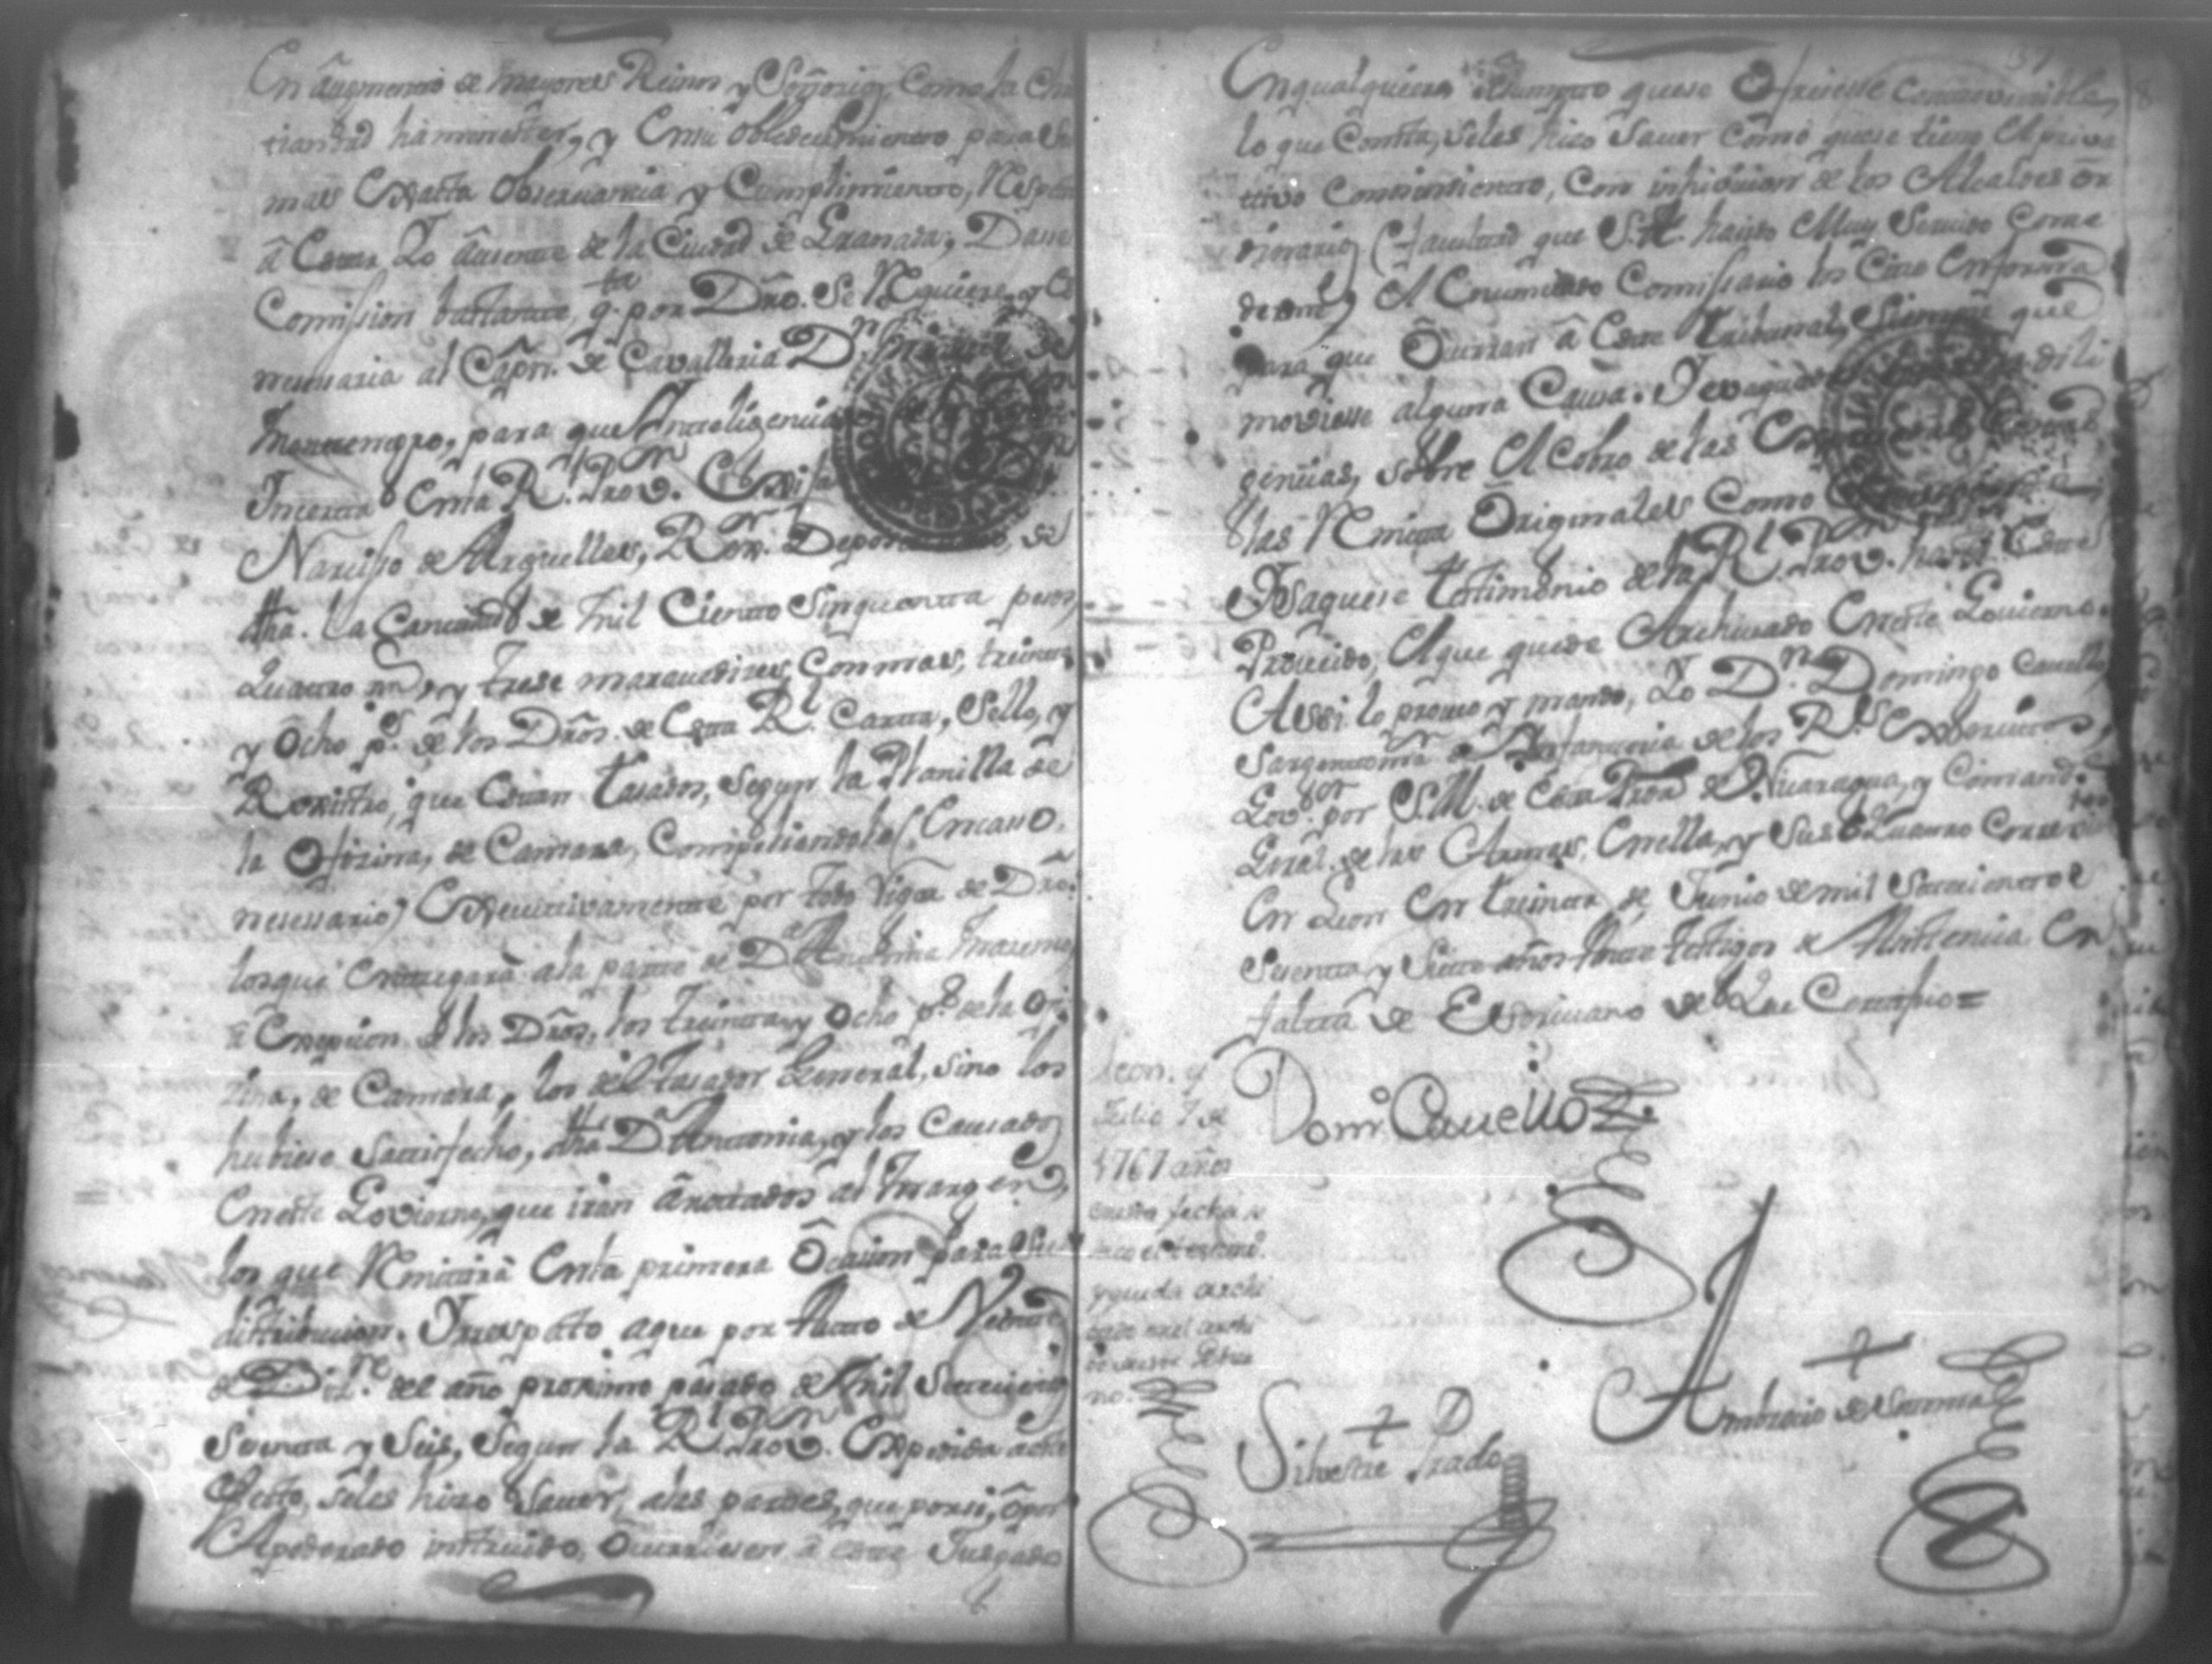 En augmento de mayores Reinos y Señorios, como la Chris
tiandad ha menester, y en su obbedecimiento para su
mas exacta observancia y Cumplimiento, Respecto
â estar Yo âusente de la Ciudad de Granada, Dase
Comission bastante, q. por Dro. Se Requiere, y es
nesessaria al Capn. de Cavalleria Dn.
Montenegro, para que
Inserta en la Rl. Prov.n
Narcisso de Arguelles, Ror. Depos
dha. la Cantidad de mil Ciento Sinquenta pesos
Quatro rrs. y trese maravedises, con mas, treinta
y Ôcho ps. de los Dros. de esta Rl. Carta, Sello, y
Rexistro, que estan tasados, segun la Planilla de
la Ofizina, de Camara, Compeliendole (en caso
nesessario) Executivamente por todo rigor de Dro.
los que entregarâ a la parte de Da. Antonia
â Exepcion de los Dros. los treinta y Ocho ps. de la Ofi
zina, de Camara, los del tasador General, sino los
hubiese Sattisfecho, dha Da. Antonia, y los Causados
en este Govierno, que iran ânottados al margen,
los que Remitirâ en la primera Ôcasion para su
distribucion. Y respeto aque por Autto de Veinte
de Dizre. del año proximo pasado de mil Settecientos
Sesenta y Seis, Segun la Rl. Prov.n Expedida a este
efecto, se les hizo Saver, a las partes, que por si, ô por
Apoderado instruido, Ôcurriesen â este Jusgado
En qualquiera assumpto que se Ofreciese
lo que Consta, se les hizo Saver como que se tiene el priva
ttivo Conosimiento, Con inhivicion de los Alcaldes or
dinarios (facultad que S.M. ha sido Muy Servido Conce
derme) el enunciado Comissario los Cite en forma
para que Ôcurran â este Tribunal, Siempre que
moviesse alguna Causa. Y evaquadas dili
gencias, sobre el Cobro de las
las Remita Ôriginales como
Y saquese testimonio de la Rl. Prov.n hasta este
Proveido, el que quede Archivado en este Govierno.
Assi lo proveo y mando, Yo Dn. Domingo Cavello
Sargentto mr. de Infanteria de los Rs. Exercitos,
Govor. por S.M. de esta Prova. de Nicaragua, y Comandte.
Genal. de las Armas, en ella, y sus Quatro Corregimtos
En Leon en treinta de Junio de mil Settecientos
Sesenta y Siete años Ante testigos de Assistencia en
falta de Escrivano de lo Que Certifico=
Domo. Cavello
Leon. y
Julio 7 de
1767 años
en esta fecha se
saco el testimo.
y queda archi
vado en el archi
bo de este Govier
no.
Silvestre Prado
Ambrocio de Somma